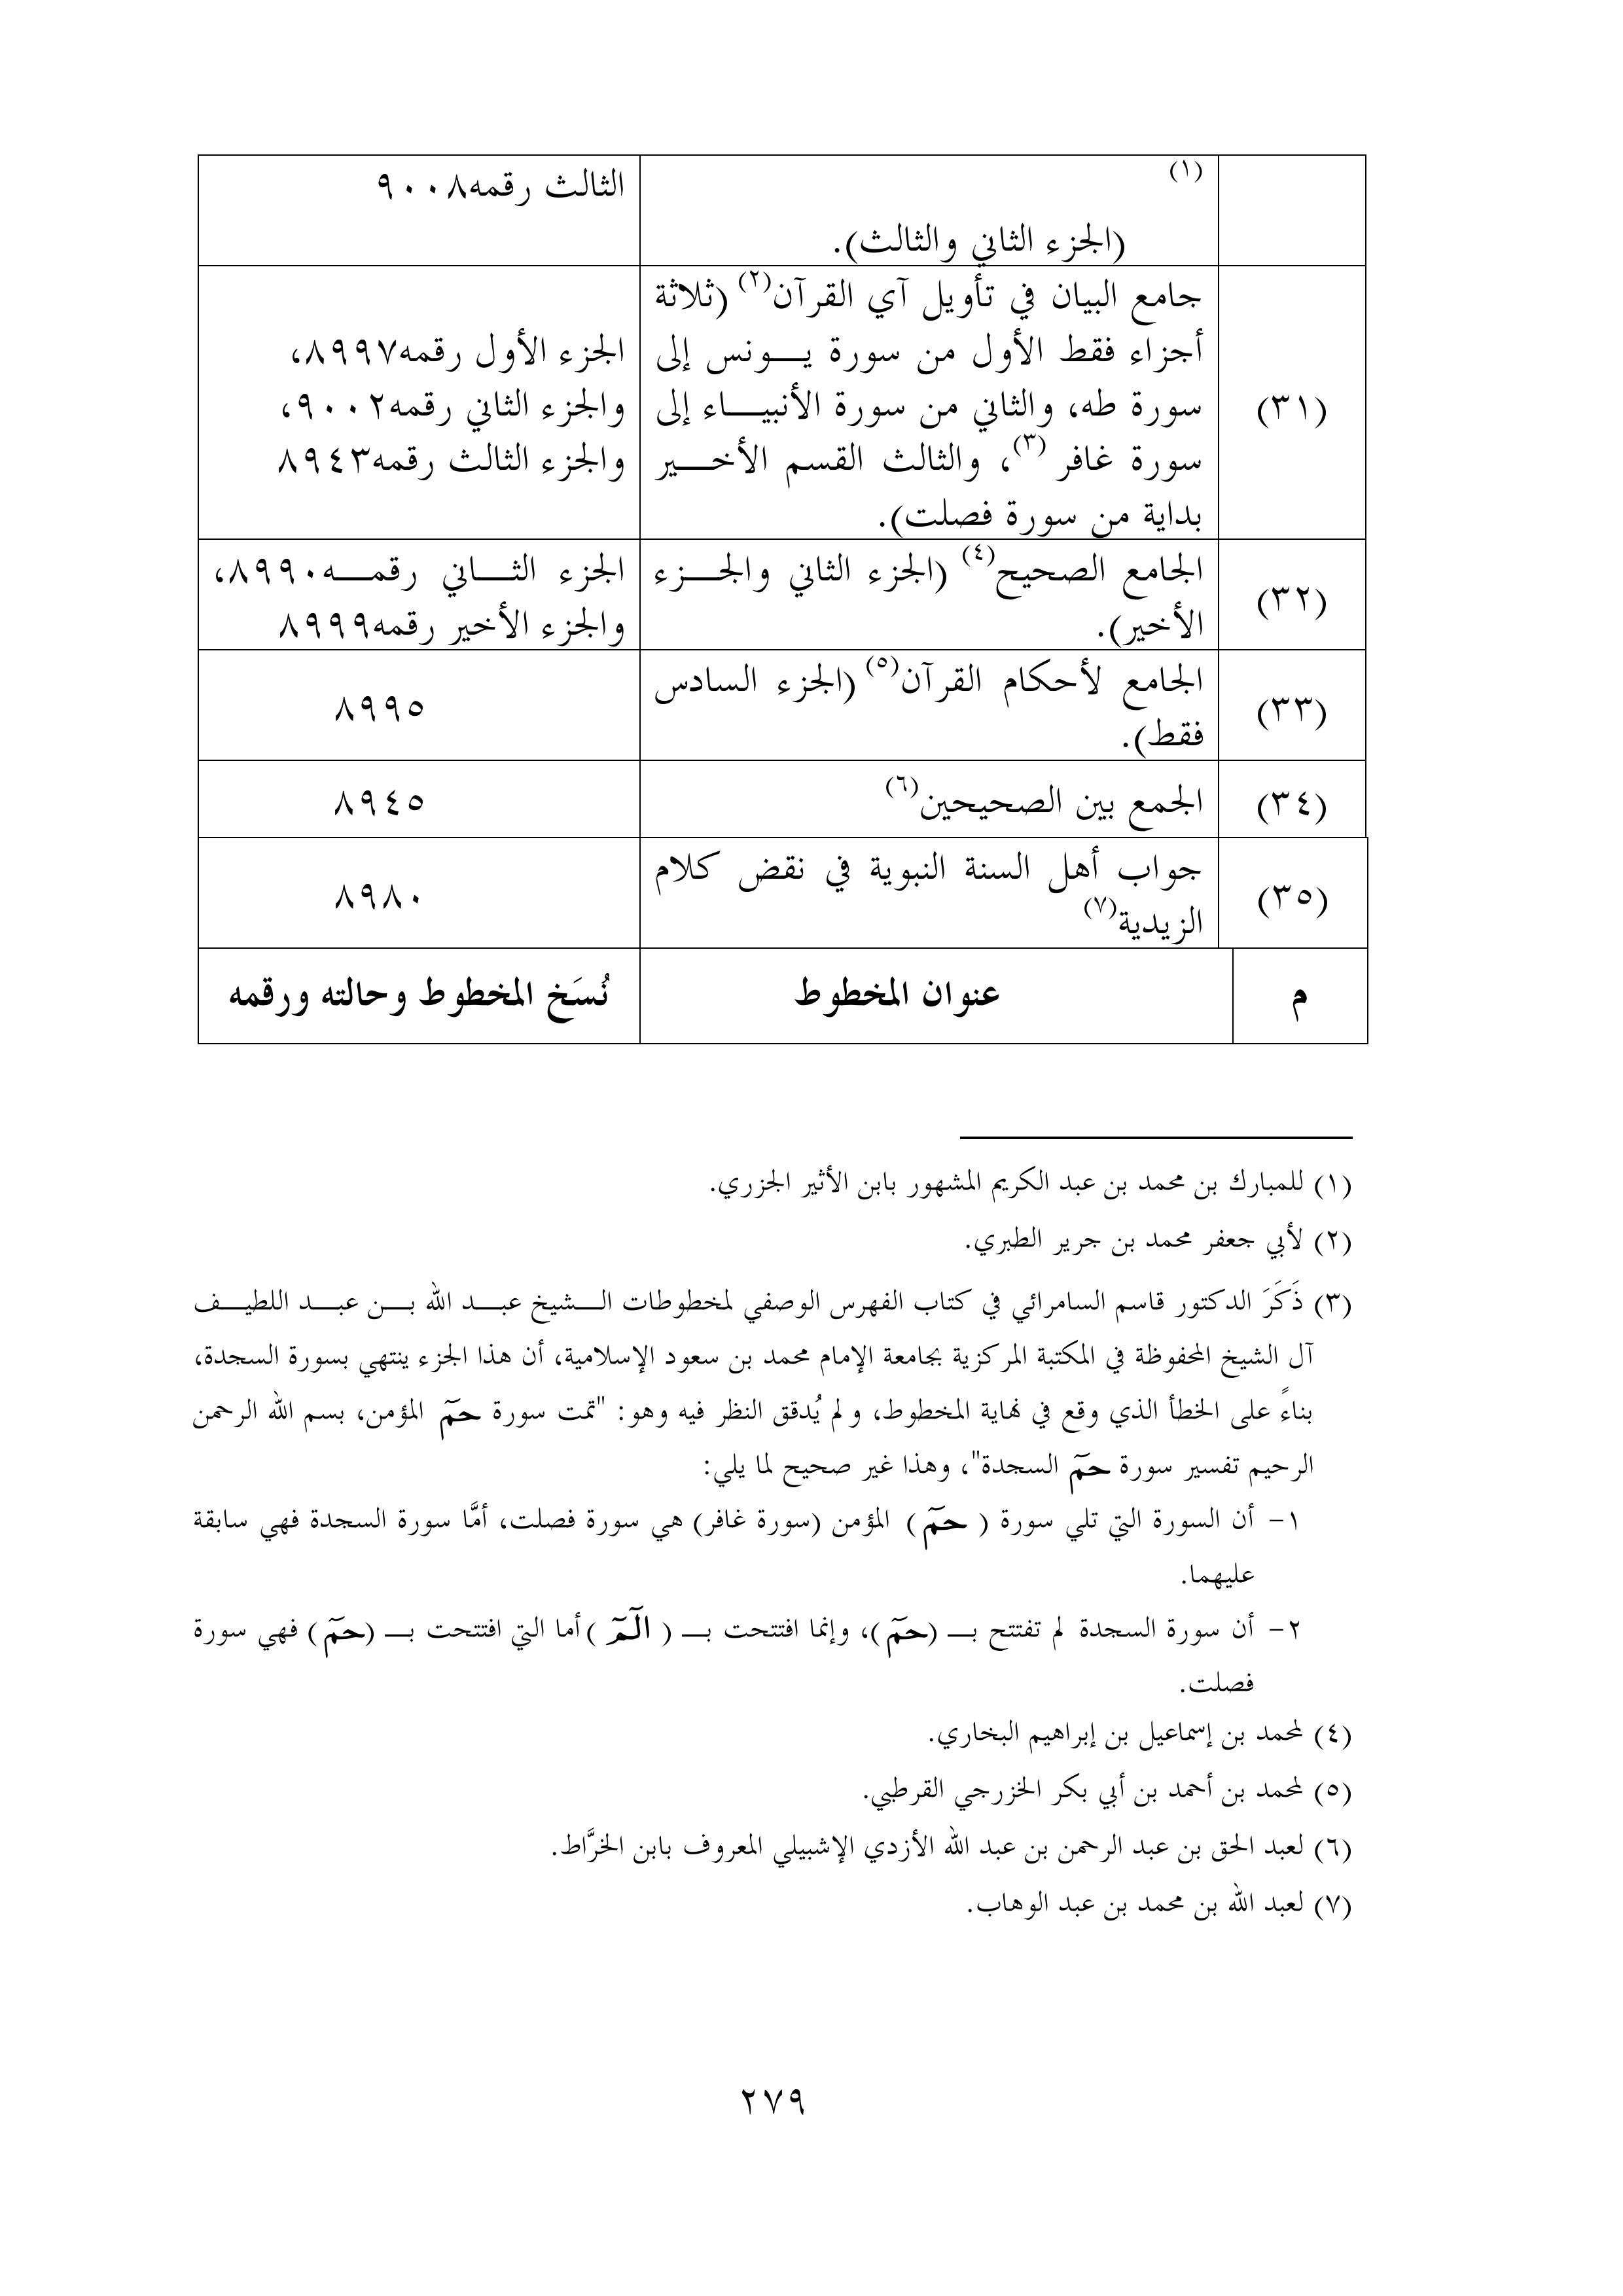 (١)
(الجزء الثاني والثالث).
الثالث رقمه٩٠٠٨
(٣١)
جامع البيان في تأويل آي القرآن(٢) (ثلاثة
أجزاء فقط الأول من سورة يـونس إلى
سورة طه، والثاني من سورة الأنبيـاء إلى
سورة غافر (٣)، والثالث القسم الأخـير
بداية من سورة فصلت).
الجزء الأول رقمه٨٩٩٧،
والجزء الثاني رقمه٩٠٠٢،
والجزء الثالث رقمه٨٩٤٣
(٣٢)
الجامع الصحيح(٤) (الجزء الثاني والجـزء
الأخير).
الجزء الثـاني رقمـه٨٩٩٠،
والجزء الأخير رقمه٨٩٩٩
(٣٣)
الجامع لأحكام القرآن(٥) (الجزء السادس
فقط).
٨٩٩٥
(٣٤)
الجمع بين الصحيحين(٦)
٨٩٤٥
(٣٥)
جواب أهل السنة النبوية في نقض كلام
الزيدية(٧)
٨٩٨٠
م
عنوان المخطوط
نُسَخ المخطوط وحالته ورقمه
(١) للمبارك بن محمد بن عبد الكريم المشهور بابن الأثير الجزري.
(٢) لأبي جعفر محمد بن جرير الطبري.
(٣) ذَكَرَ الدكتور قاسم السامرائي في كتاب الفهرس الوصفي لمخطوطات الـشيخ عبـد الله بـن عبـد اللطيـف
آل الشيخ المحفوظة في المكتبة المركزية بجامعة الإمام محمد بن سعود الإسلامية، أن هذا الجزء ينتهي بسورة السجدة،
بناءً على الخطأ الذي وقع في نهاية المخطوط، ولم يُدقق النظر فيه وهو: "تمت سورة حمٓ المؤمن، بسم الله الرحمن
الرحيم تفسير سورة حمٓ السجدة"، وهذا غير صحيح لما يلي:
١- أن السورة التي تلي سورة ( حمٓ ) المؤمن (سورة غافر) هي سورة فصلت، أمَّا سورة السجدة فهي سابقة
عليهما.
٢- أن سورة السجدة لم تفتتح بـ (حمٓ)، وإنما افتتحت بـ ( الٓمٓ ) أما التي افتتحت بـ (حمٓ) فهي سورة
فصلت.
(٤) لمحمد بن إسماعيل بن إبراهيم البخاري.
(٥) لمحمد بن أحمد بن أبي بكر الخزرجي القرطبي.
(٦) لعبد الحق بن عبد الرحمن بن عبد الله الأزدي الإشبيلي المعروف بابن الخرَّاط.
(٧) لعبد الله بن محمد بن عبد الوهاب.
٢٧٩